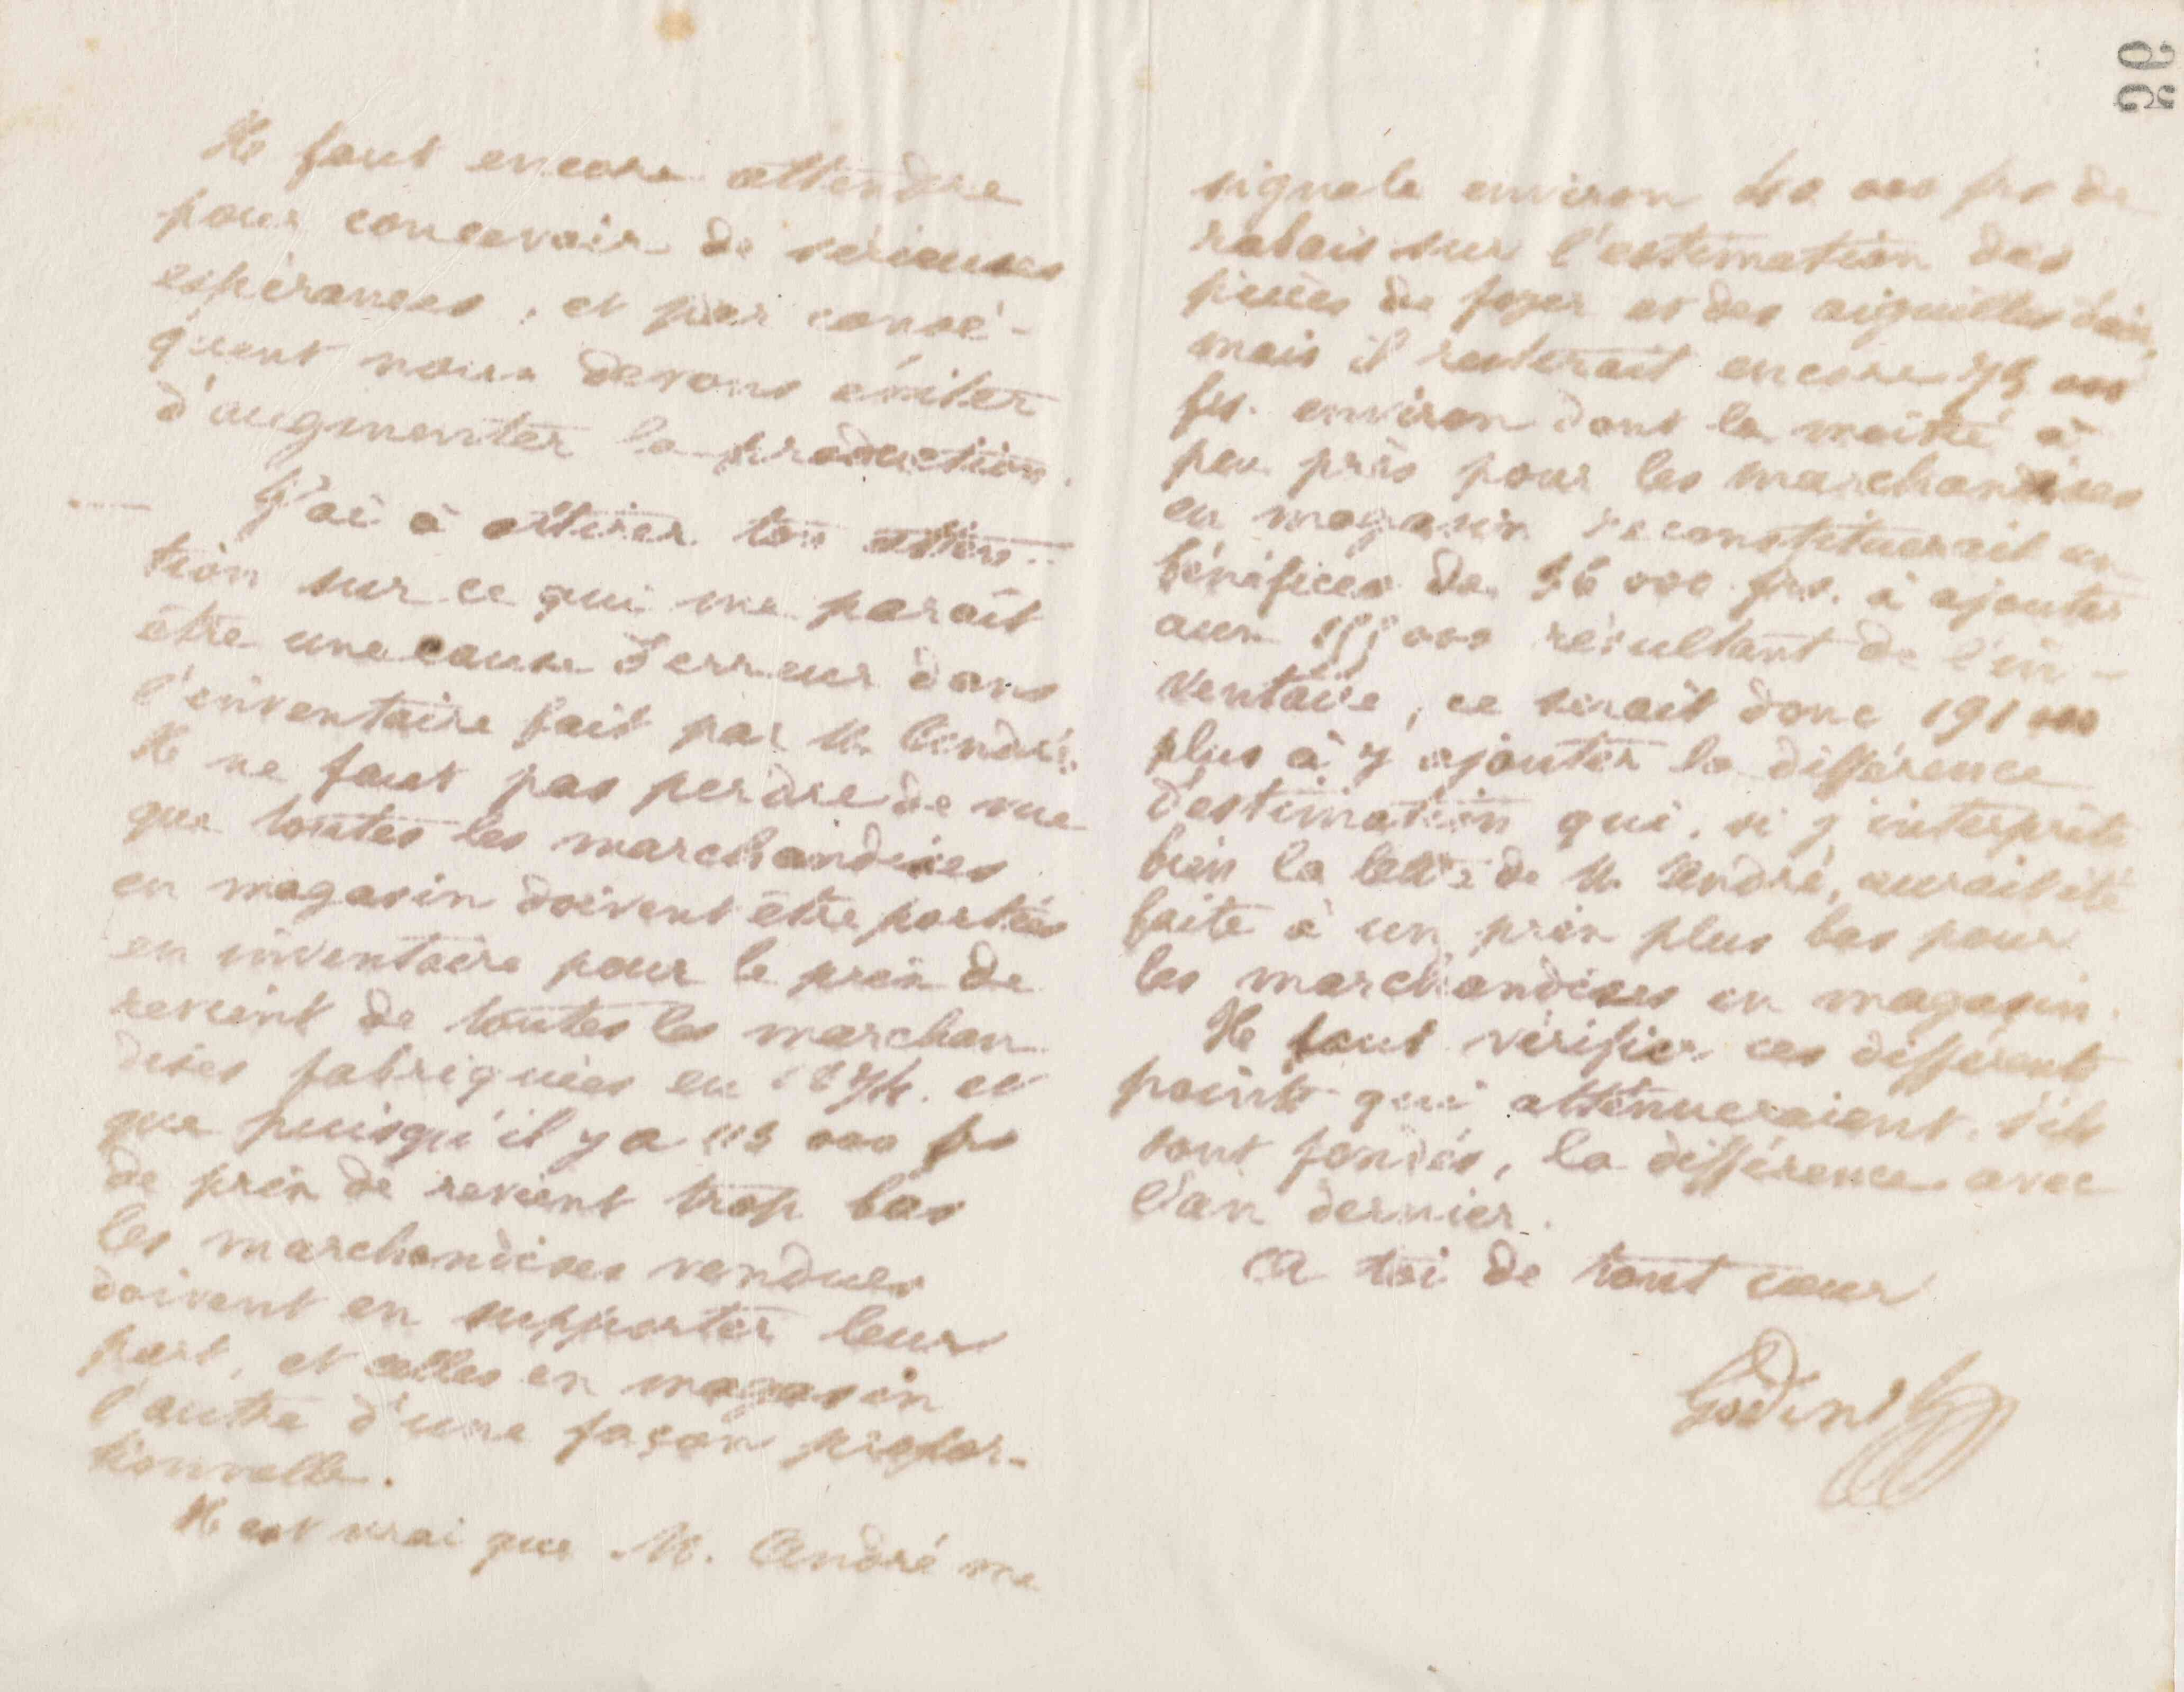 95
Il faut encore attendre
pour concevoir de sérieuses
espérances, et par consé-
quent nous devons éviter
d'augmenter la production.
J'ai à attirer ton atten-
tion sur ce qui me paraît
être une cause d'erreur dans
l'inventaire fait par M. André.
Il ne faut pas perdre de vue
que toutes les marchandises
en magasin doivent être portées
en inventaire pour le prix de
revient de toutes les marchan
dises fabriquées en 1874. et
que puisqu'il y a 113 000 frs
de prix de revient trop bas
les marchandises vendues
doivent en supporter leur
part, et celles en magasin
l'autre d'une façon propor-
tionnelle.
Il est vrai que M. André me
signale environ 40 000 frs de
rabais sur l'estimation des
pièces de foyer et des aiguilles
mais il resterait encore 73 000
frs. environ dont la moitié à
peu près pour les marchandises
en magasin reconstituerait un
bénéfices de 36 000 frs. à ajouter
aux 155 000 résultant de l'in-
ventaire, ce serait donc 191 000
plus à y ajouter la différence
d'estimation qui, si j'interprète
bien la lettre de M. André, aurait été
faite à un prix plus bas pour
les marchandises en magasin.
Il faut vérifier ces différents
points qui atténueraient, s'ils
sont fondés, la différence avec
l'an dernier.
A toi de tout cœur
Godin